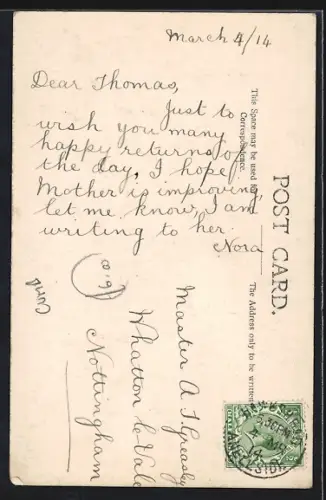 March 4/14
Dear Thomas,
Just to
wish you many
happy returns of
the day, I hope
Mother is improving
let me know, I am
writing to her.
Nora
This Space may be used for
Correspondence.
POST CARD.
The Address only to be written
Master A
Whatton le Vale
Nottingham
Card